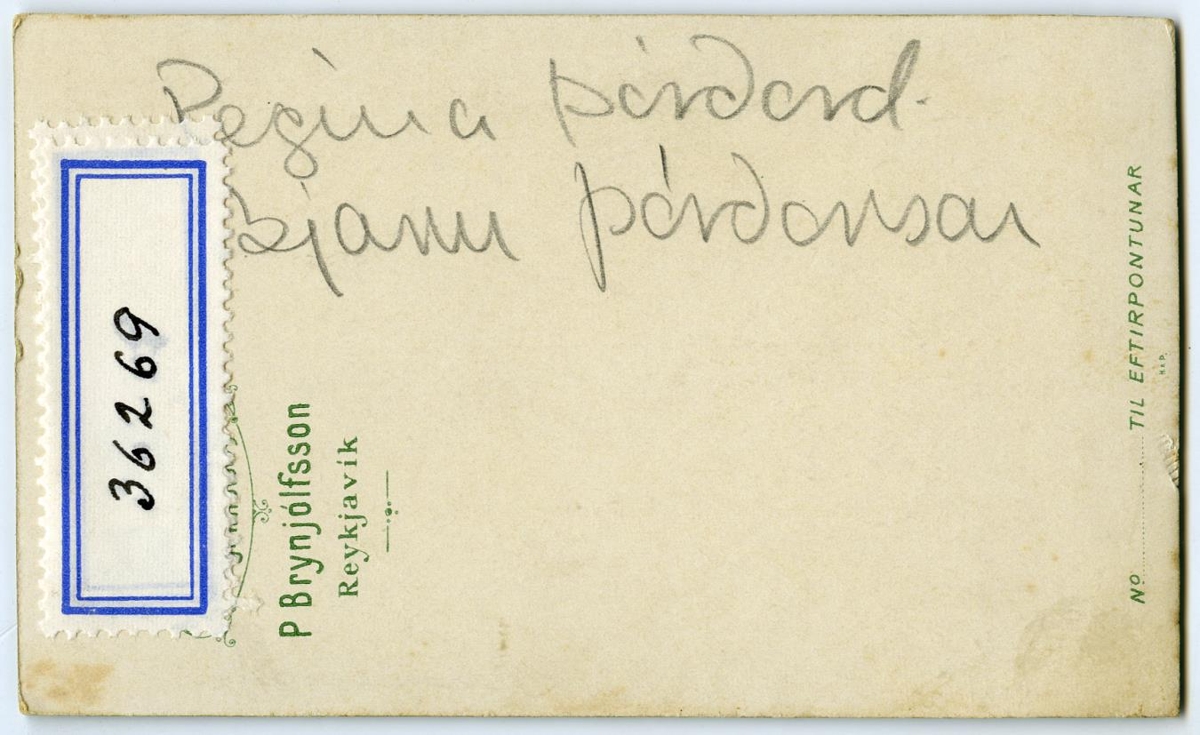 Regina þórðard.
36269
P Brynjólfsson
Reykjavik
No TIL EFTIRPONTUNAR